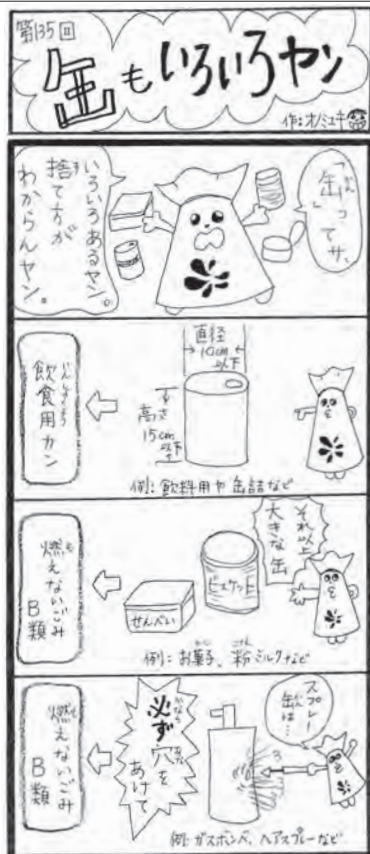 第135回
缶もいろいろヤン
作:オノミユキ
「缶」ってサ、
かん
いろいろあるヤン。
捨て方が
す
わからんヤン。
直径
10cm
以下
高さ
15cm
以下
飲食用カン
いんしょくよう
例:飲料用や缶詰など
それ以上
大きな缶
ビスケット
せんべい
燃えないごみ
も
B類
例:お菓子、粉ミルクなど
かし
こな
スプレー
缶は…
必ず穴を
かなら
あな
あけて
燃えないごみ
も
B類
例:ガスボンベ、ヘアスプレーなど